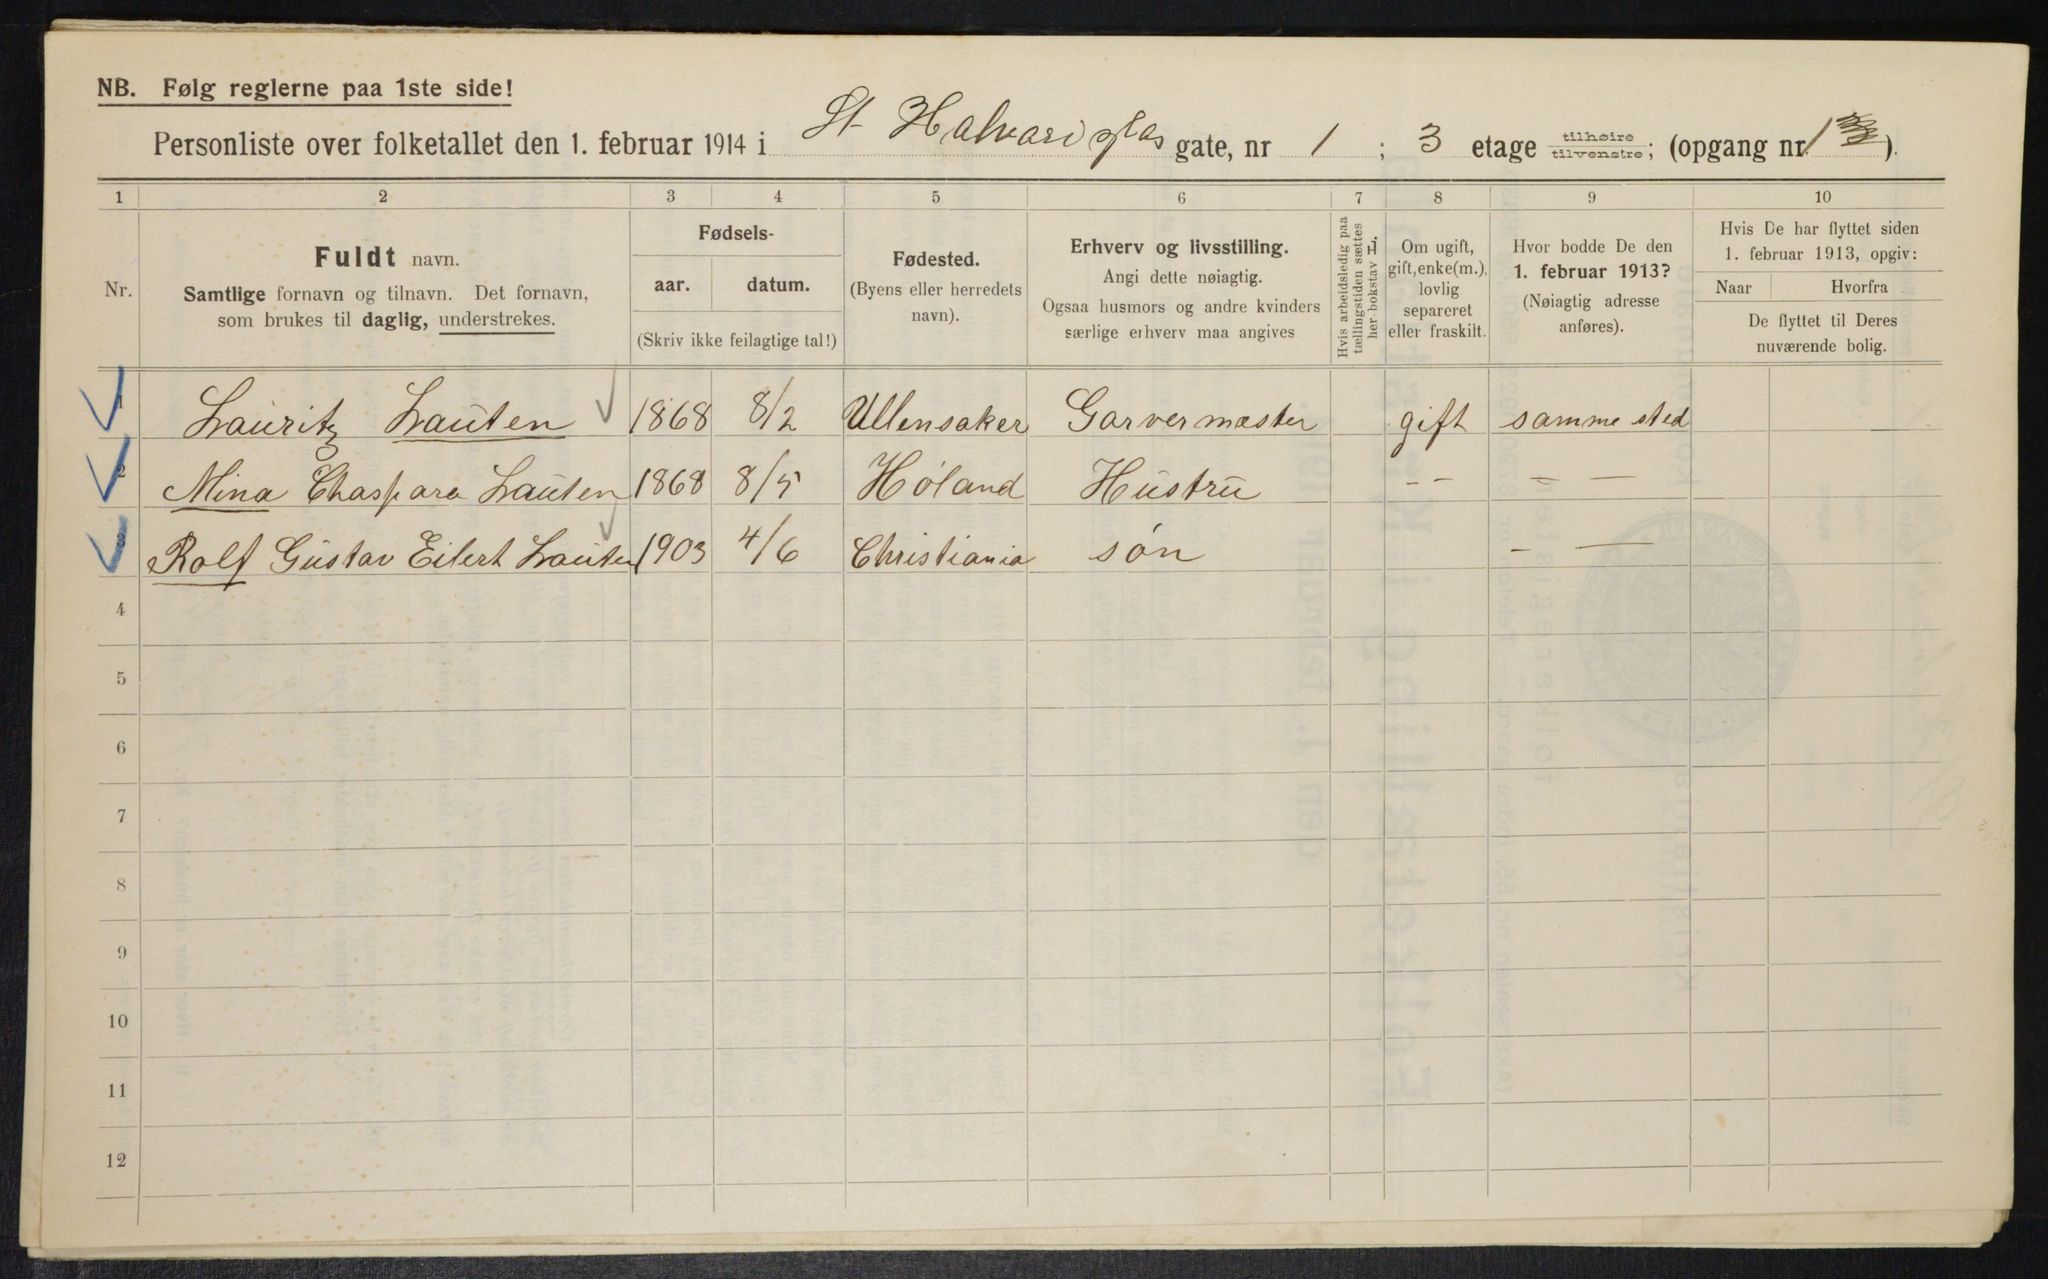 NB. Følg reglerne paa 1ste side!
Personliste over folketallet den 1. februar 1914 i St Halvards plas gate, nr 1; 3 etage tilhøire/tilvenstre; (opgang nr. 1).
1 2 3 4 5 6 7 8 9 10
Nr.
Fuldt navn.
Samtlige fornavn og tilnavn. Det fornavn,
som brukes til daglig, understrekes.
Fødsels-
aar. datum.
(Skriv ikke feilagtige tal!)
Fødested.
(Byens eller herredets
navn).
Erhverv og livsstilling.
Angi dette nøiagtig.
Ogsaa husmors og andre kvinders
særlige erhverv maa angives
Hvis arbeidsledig paa
tællingstiden sættes
her bokstav L.
Om ugift,
gift, enke(m.),
lovlig
separeret
eller fraskilt.
Hvor bodde De den
1. februar 1913?
(Nøiagtig adresse
anføres).
Hvis De har flyttet siden
1. februar 1913, opgiv:
Naar Hvorfra
De flyttet til Deres
nuværende bolig.
1 Lauritz Lauten 1868 8/2 Ullensaker Garvermæster gift samme sted
2 Mina Chaspara Lauten 1868 8/5 Høland Hustru -- - -
3 Rolf Gustav Eilert Lauten 1903 4/6 Christiania søn - -
4
5
6
7
8
9
10
11
12